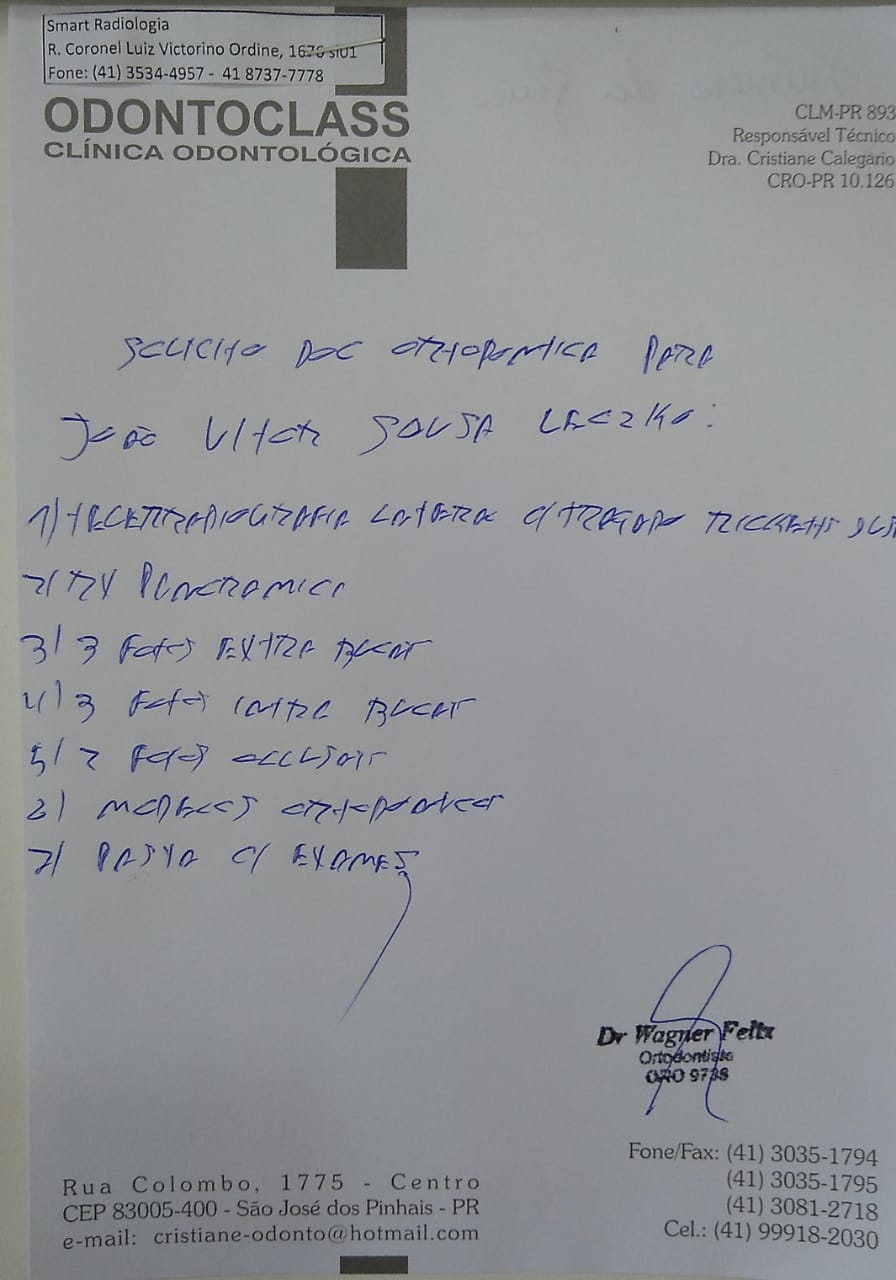 Smart Radiologia
R. Coronel Luiz Victorino Ordine, 1676 sl01
Fone: (41) 3534-4957 - 41 8737-7778
ODONTOCLASS
CLÍNICA ODONTOLÓGICA
CLM-PR 893
Responsável Técnico
Dra. Cristiane Calegario
CRO-PR 10.126
SOLICITO DOC ORTODONTICA PARA
JOÃO VITOR SOUSA LECZKO:
1) TELERRADIOGRAFIA LATERAL C/ TRAÇADO RICKETTS
2) RX PANORAMICA
3) 3 FOTOS EXTRA BUCAL
4) 3 FOTOS INTRA BUCAL
5) 2 FOTOS OCLUSAIS
MODELOS ORTODONTICO
7) PASTA C/ EXAMES
Dr Wagner Felix
Ortodontista
CRO 9738
Rua Colombo, 1775 - Centro
CEP 83005-400 - São José dos Pinhais - PR
e-mail: cristiane-odonto@hotmail.com
Fone/Fax: (41) 3035-1794
(41) 3035-1795
(41) 3081-2718
Cel.: (41) 99918-2030